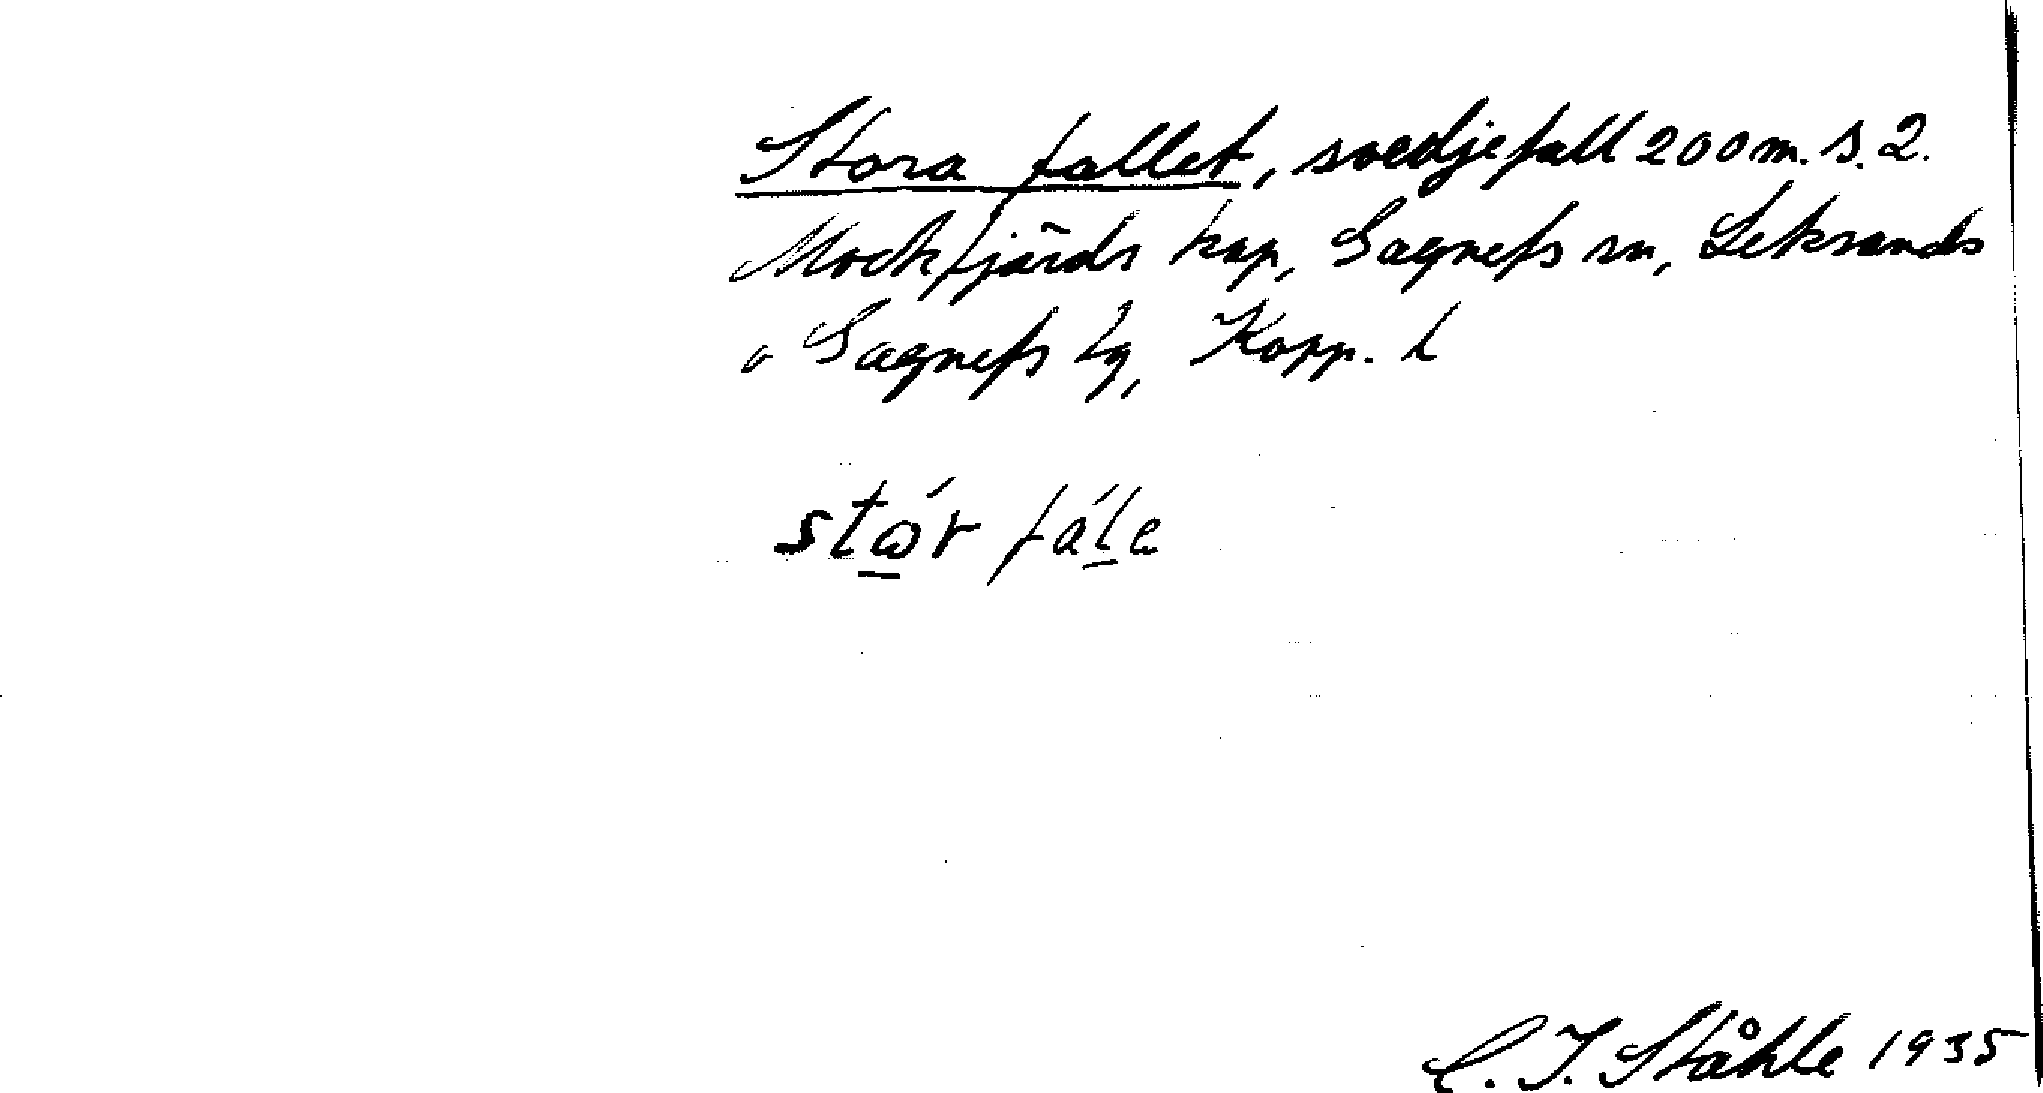 Stora fallet, svedjefall 200 m. S. 2.
Mockfjärds kap, Gagnefs sn, Leksands
o Gagnefs tg, Kopp. l
stώ̲r fál̲e
C. I. Ståhle 1935